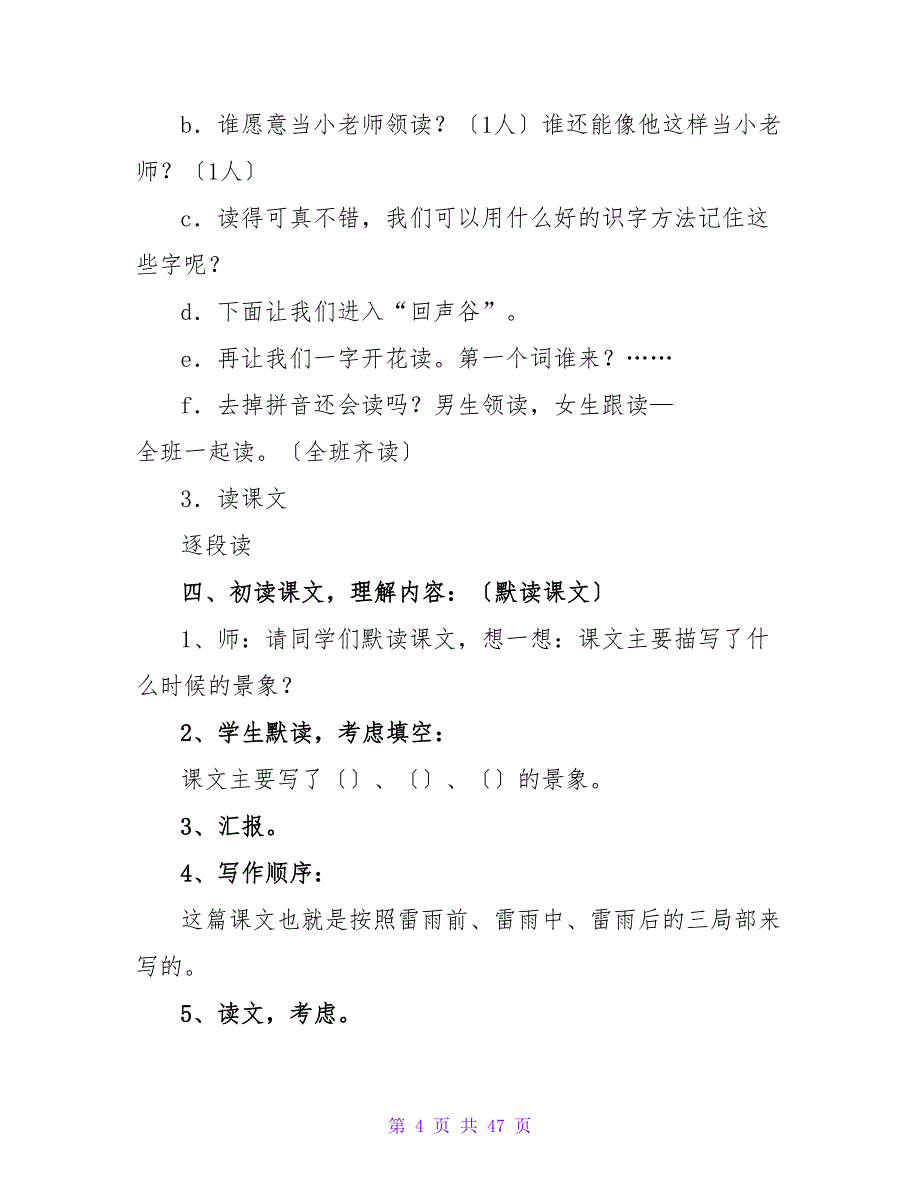 b．谁愿意当小老师领读？〔1人〕谁还能像他这样当小老
师？〔1人〕
c．读得可真不错，我们可以用什么好的识字方法记住这
些字呢？
d．下面让我们进入“回声谷”。
e．再让我们一字开花读。第一个词谁来？……
f．去掉拼音还会读吗？男生领读，女生跟读—
全班一起读。〔全班齐读〕
3．读课文
逐段读
四、初读课文，理解内容：〔默读课文〕
1、师：请同学们默读课文，想一想：课文主要描写了什
么时候的景象？
2、学生默读，考虑填空：
课文主要写了〔〕、〔〕、〔〕的景象。
3、汇报。
4、写作顺序：
这篇课文也就是按照雷雨前、雷雨中、雷雨后的三局部来
写的。
5、读文，考虑。
第 4 页 共 47 页